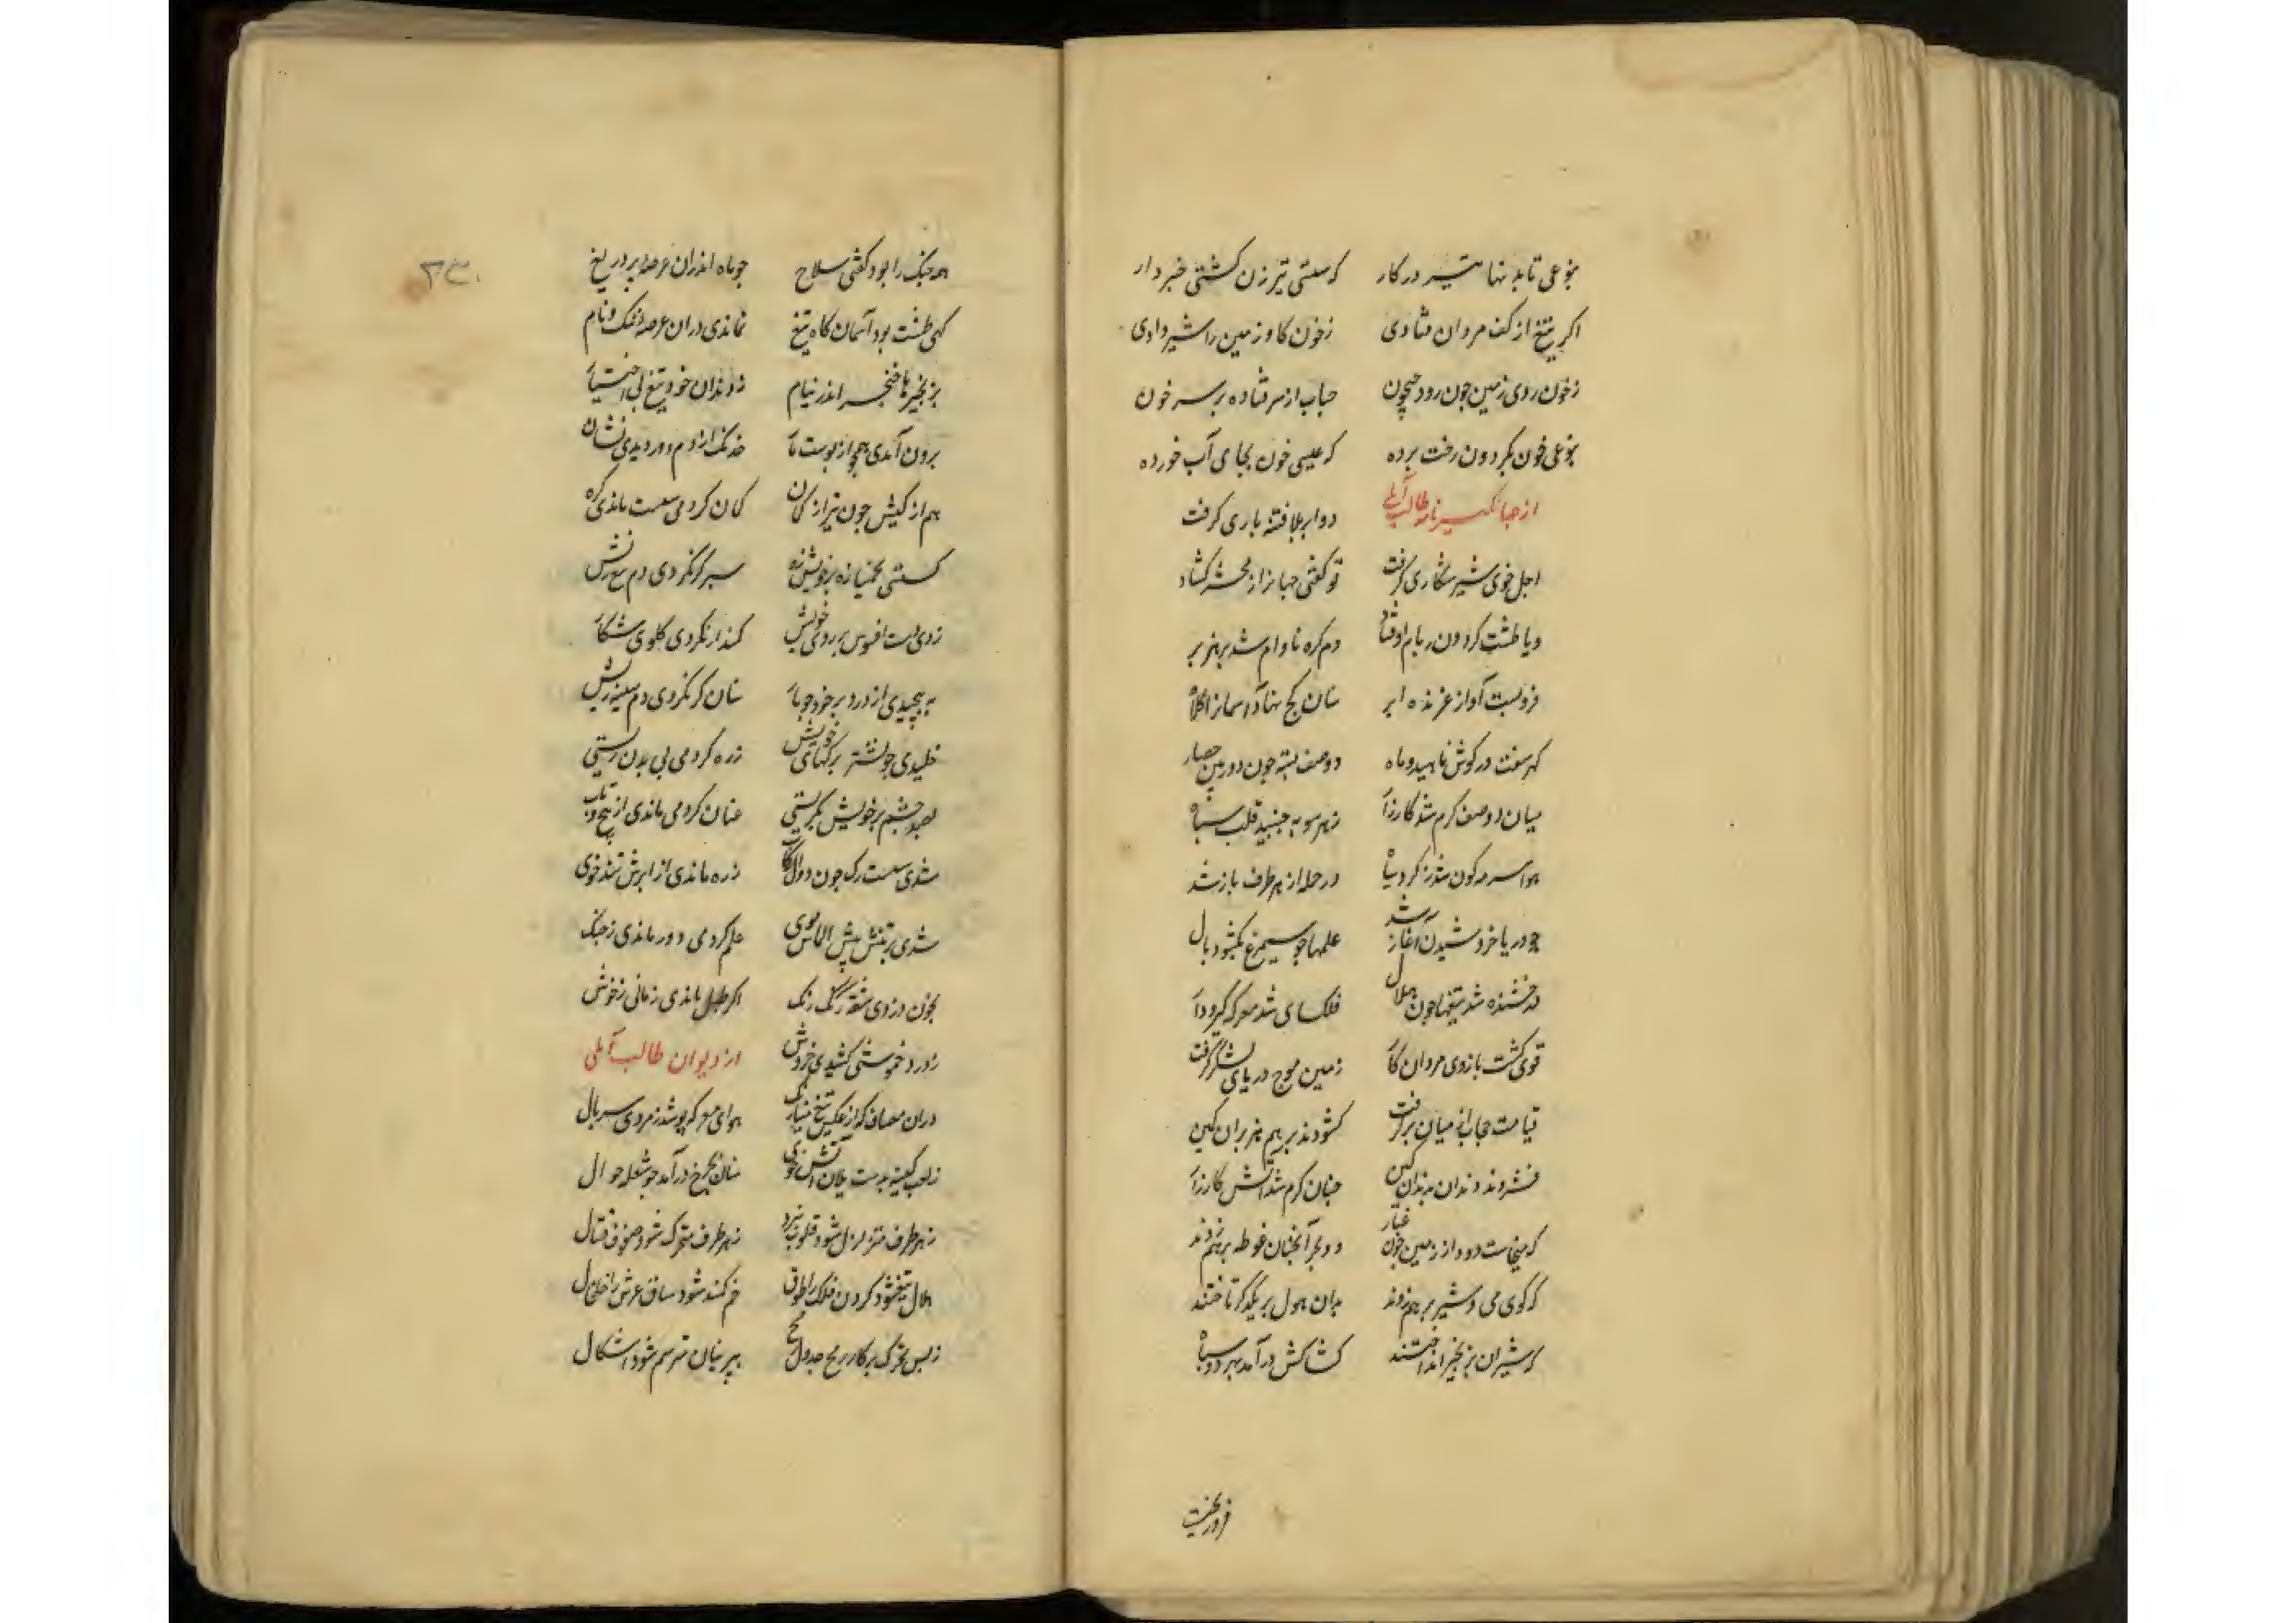 بنوعی تا به نهاتیر در کار که سستی تیر زن کشتی خبر دار
اکر تیغ از کف مردان فتادی زخون کاو زمین را شیر دادی
زخون روی زمین چون رود جیحون حباب از سر فتاده بر سر خون
بنوعی خون بکردون رخت برده که عیسی خون بجای آب خورده
از جهانکیرنامه طالب آملی دو ابر بلا فتنه باری کرفت
اجل خوی شیر شکاری کرفت تو کفتی جهانرا ز محشر کشاد
ویا طشت کردون ز بام اوفتاد دم کره نا وام شد بر هزبر
فروبست آواز غرنده ابر سنان کج نهاد آسمانرا کلاه
کهر سفت در کوش ناهید و ماه دو صف بسته چون دو رویین حصار
میان دو صف کرم شد کارزار ز هر سو بجنبید قلب سپاه
هوا سرمه کون شد ز کرد سیاه در حمله از هر طرف باز شد
چو دریا خروشیدن آغاز شد علمها چو سیمرغ بکشود بال
درخشنده شد تیغها چون هلال فلک سای شد معرکه کیر و دار
قوی کشت بازوی مردان کار زمین موج دریای لشکر کرفت
قیامت حجاب از میان برکرفت کشودند بر هم هزبران کمین
فشردند دندان بدندان کین چنان کرم شد آتش کارزار
که میخاست دود از زمین چون غبار دو بحر آنچنان غوطه بر هم زدند
که کوی می و شیر بر هم زدند بدان هول بر یکدکر تاختند
که شیران بزنجیر انداختند کشاکش درآمد بهر دو سپاه
فروریخت
۲۳۰
همه جنک را بود کفتی سلاح چو ماه اندران عرصه بر در یغ
کهی طشت بود آسمان کاه تیغ نماندی دران عرصه از ننک و نام
بزنجیرها خنجر اندر نیام ز دندان خود تیغ بی اختیار
برون آمدی همچو از پوست مار خدنک ار ز دم دور دیدی نشان
هم از کیش چون تیر از کمان کمان کر دمی سست ماندی زه
سپر کر نکردی دم تیغ ریش
زدی دست افسوس بر روی خویش کمند ار نکردی کلوی شکار
به پیچیدی از درد بر خود چو مار سنان کر نکردی دم سینه ریش
خلیدی چو نشتر برکهای خویش زره کر دمی بی بدن زیستی
بصد چشم بر خویش بکریستی عنان کر دمی ماندی از پیچ و تاب
شدی سست رک چون دوال رکاب زره ماندی از ابرش تند خوی
شدی بر تنش پیش الماس موی علم کر دمی دور ماندی ز جنک
بخون در زدی شقه رنک رنک اکر طبل ماندی زمانی ز خوش
ز درد خموشی کشیدی خروش از دیوان طالب آملی
دران مصاف که از عکس تیغ مینارنک هوای معرکه پوشد زمردی سربال
ز لعب کینه بدست یلان آتش خوی سنان بچرخ درآمد چو شعله جوال
ز هر طرف متزلزل شود قلوب نبرد ز هر طرف متحرک شود صفوف قتال
هلال تیغ شود کردن فلک را طوق خم کمند شود ساق عرش را خلخال
ز بس تحرک پرکار رمح جدول رمح بپرنیان مترسم شود اشکال